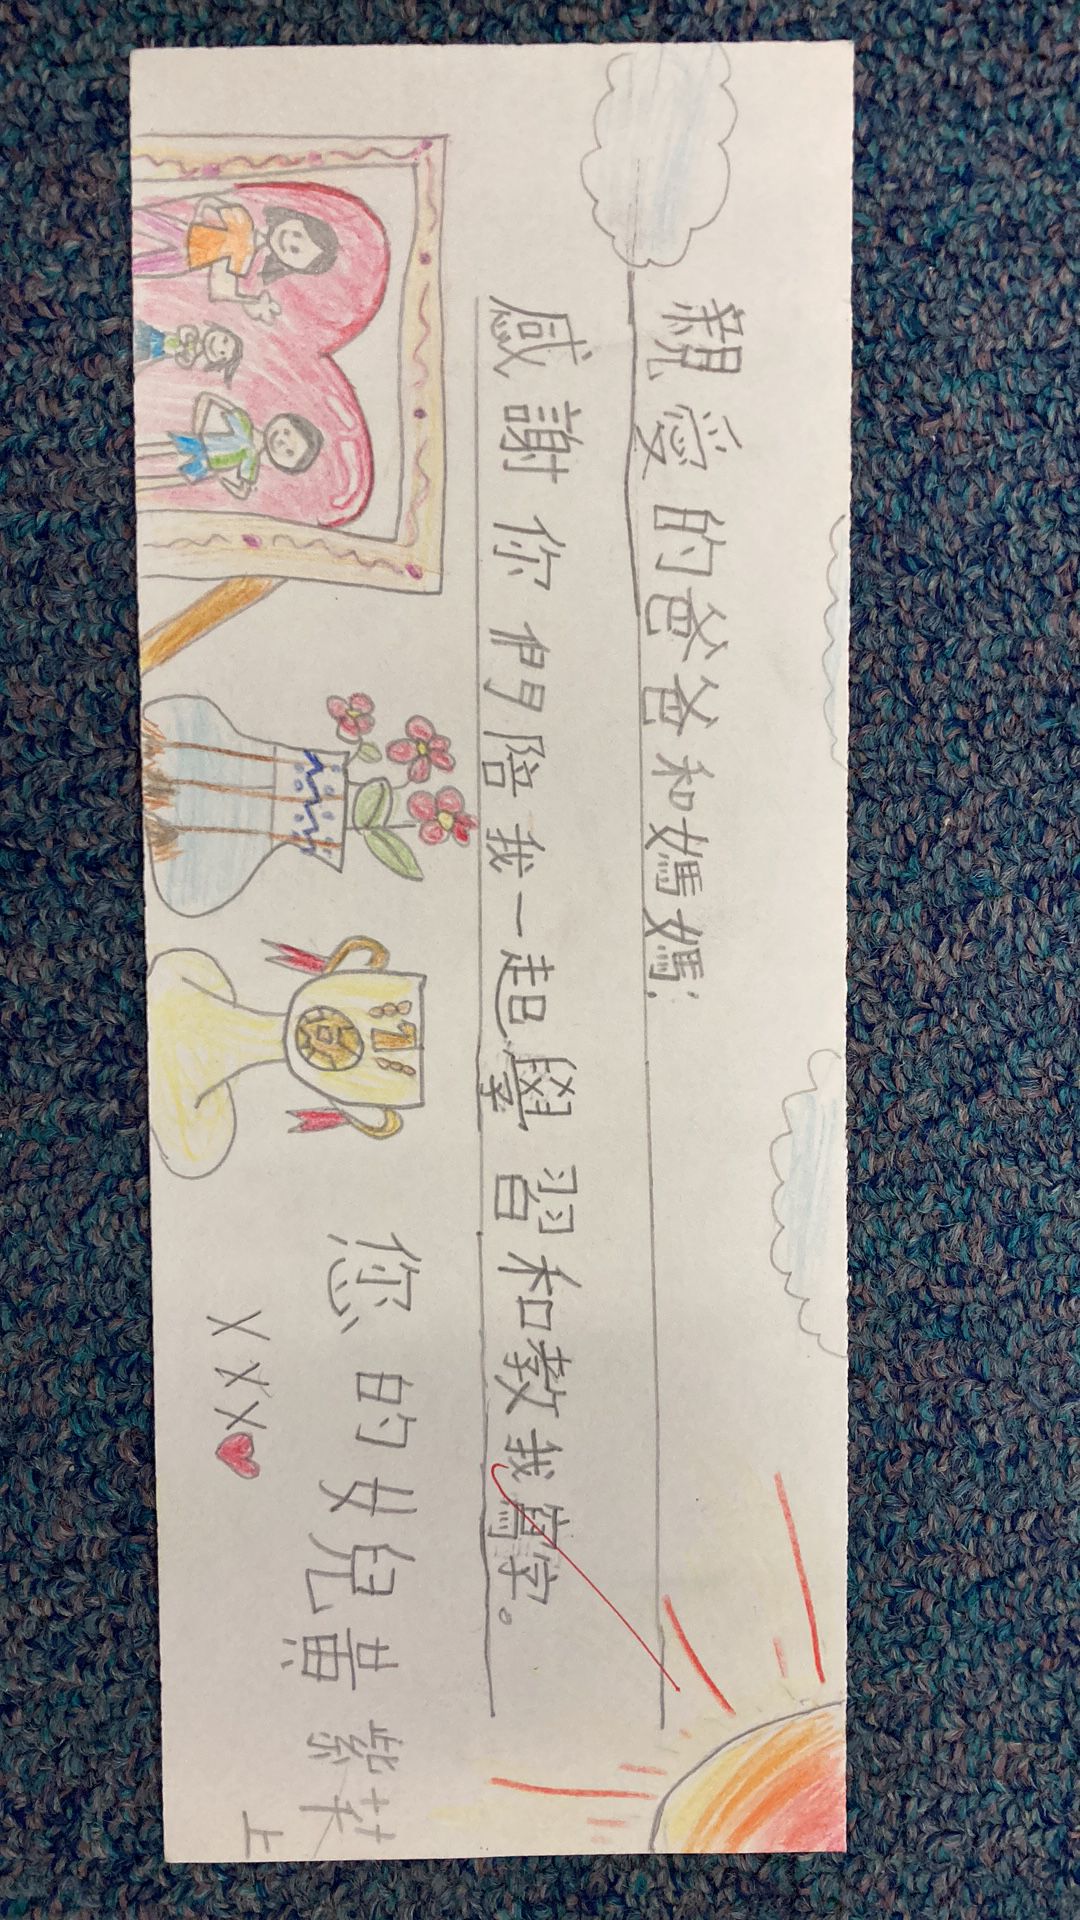 親愛的爸爸和媽媽:
感謝你們陪我一起學習和教我寫字。
您的女兒黃紫
上
XXX
1